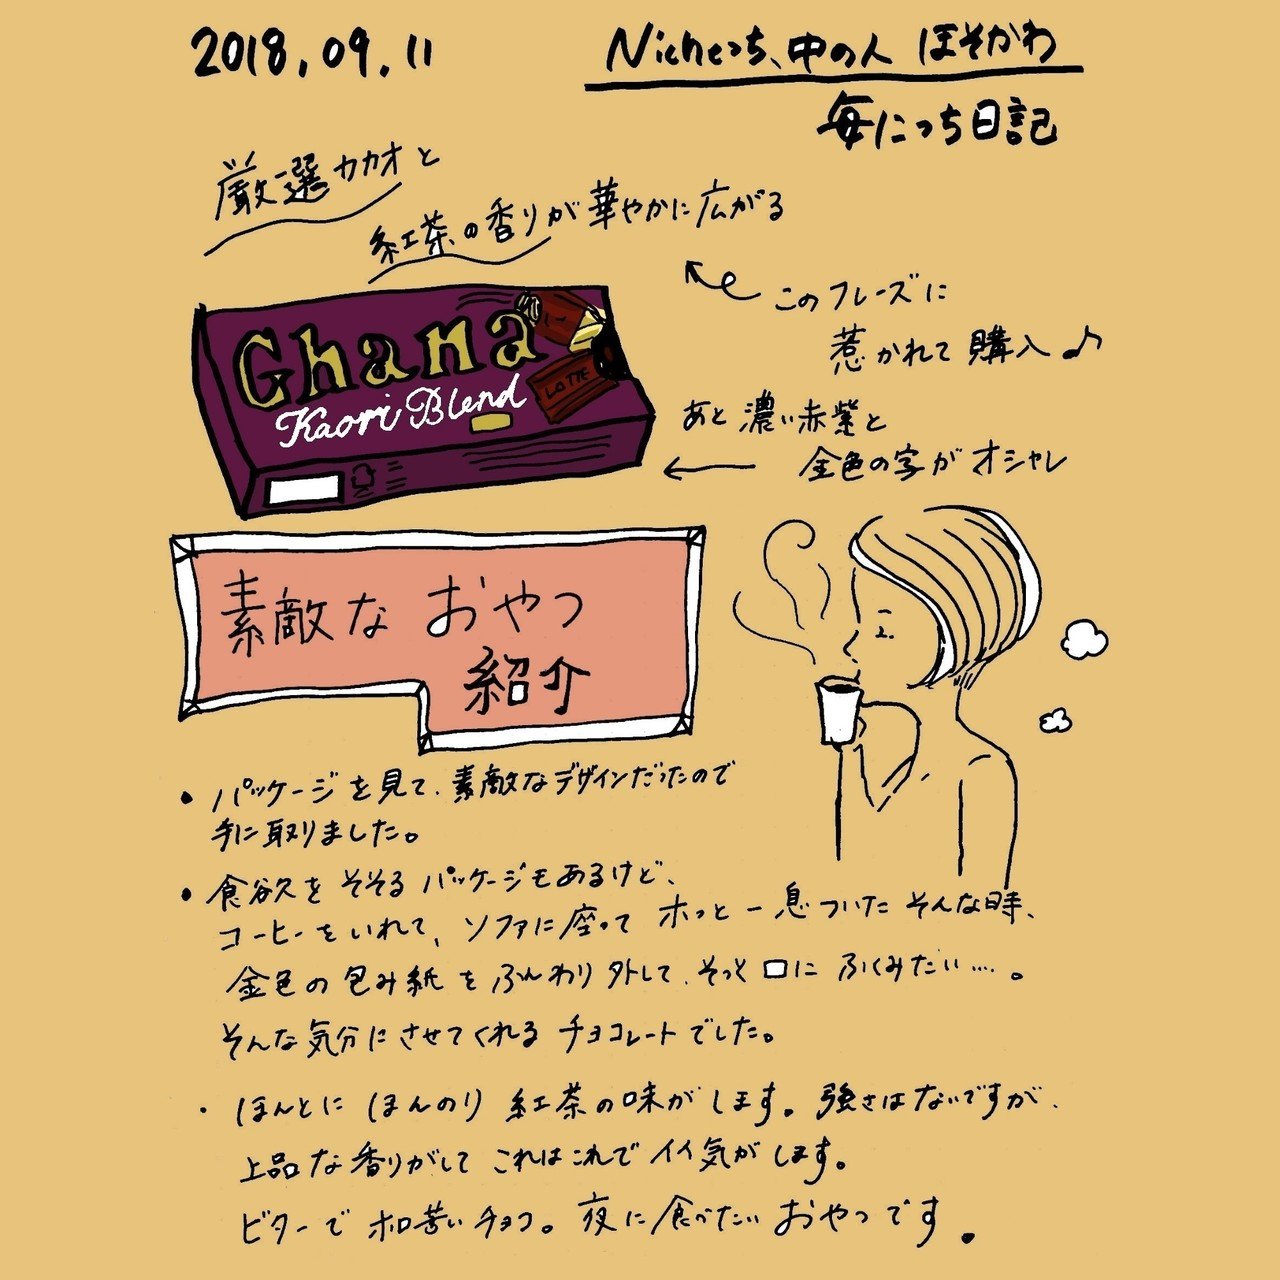 2018.09.11
Nicheっち、中の人 ほそかわ
毎にっち日記
厳選カカオと
紅茶の香りが華やかに広がる
このフレーズに
惹かれて購入♪
Ghana
Kaori Blend
LOTTE
あと濃い赤紫と
金色の字がオシャレ
素敵なおやつ
紹介
• パッケージを見て、素敵なデザインだったので
手に取りました。
• 食欲をそそるパッケージもあるけど、
コーヒーをいれて、ソファに座ってホっと一息ついたそんな時、
金色の包み紙をふんわり外して、そっと口にふくみたい…。
そんな気分にさせてくれるチョコレートでした。
・ほんとにほんのり紅茶の味がします。強さはないですが、
上品な香りがしてこれはこれでイイ気がします。
ビターでホロ苦いチョコ。夜に食べたいおやつです。